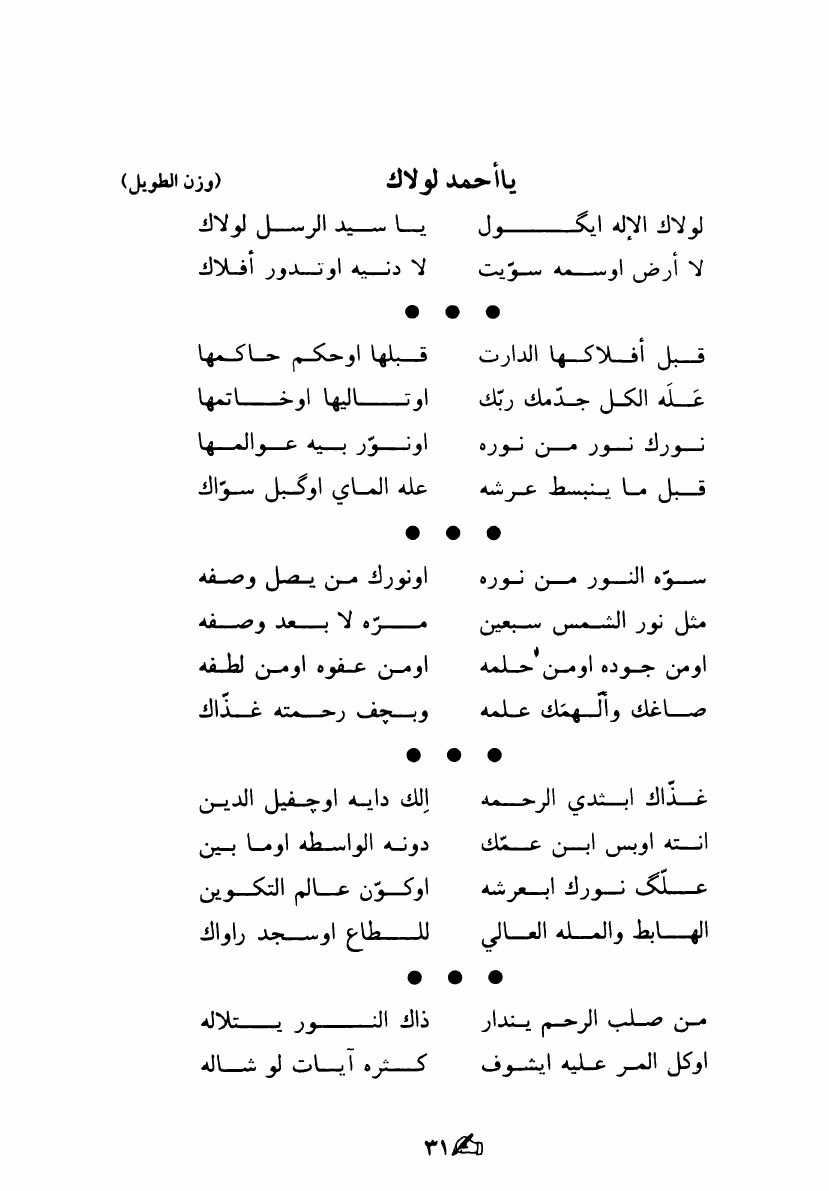 ياأحمد لولاك (وزن الطويل)
لولاك الإله ايگول يا سيد الرسل لولاك
لا أرض اوسمه سوّيت لا دنيه اوتدور أفلاك
● ● ●
قبل أفلاكها الدارت قبلها اوحكم حاكمها
عَلَه الكل جدّمك ربّك اوتاليها اوخاتمها
نورك نور من نوره اونوّر بيه عوالمها
قبل ما ينبسط عرشه عله الماي اوگبل سوّاك
● ● ●
سوّه النور من نوره اونورك من يصل وصفه
مثل نور الشمس سبعين مرّه لا بعد وصفه
اومن جوده اومن حلمه اومن عفوه اومن لطفه
صاغك وألّهمَك علمه وبچف رحمته غذّاك
● ● ●
غذّاك ابثدي الرحمه إلك دايه اوچفيل الدين
انته اوبس ابن عمّك دونه الواسطه اوما بين
علّگ نورك ابعرشه اوكوّن عالم التكوين
الهابط والمله العالي للطاع اوسجد راواك
● ● ●
من صلب الرحم يندار ذاك النور يتلاله
اوكل المر عليه ايشوف كثره آيات لو شاله
٣١